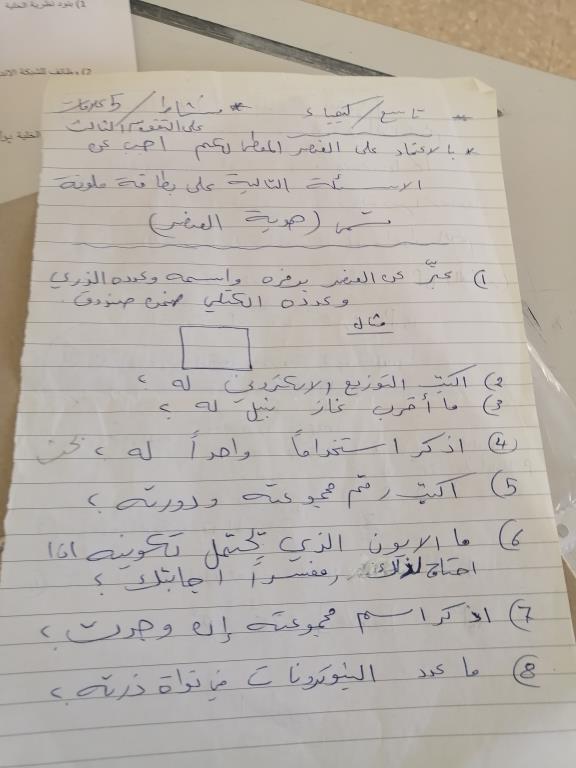 2) بنود نظرية الخلية
2) وظائف الشبكة
* تاسع / كيمياء * نشاط / 5 علامات
على التقويم الثالث
* بالاعتماد على العنصر المعطى لكم أجب عن
الاسئلة التالية على بطاقة ملونة
تسمى (هوية العنصر)
1) عبّر عن العنصر برمزه واسمه وعدده الذري
وعدده الكتلي ضمن صندوق
مثال
2) اكتب التوزيع الالكتروني له ؟
3) ما أقرب غاز نبيل له ؟
4) اذكر استخداماً واحداً له ؟ بحث
5) اكتب رقم مجموعته ودورته ؟
6) ما الايون الذي يحتمل تكوينه اذا
احتاج لذلك مفسراً اجابتك ؟
7) اذكر اسم مجموعته إن وجدت ؟
8) ما عدد النيوترونات في نواة ذرته ؟